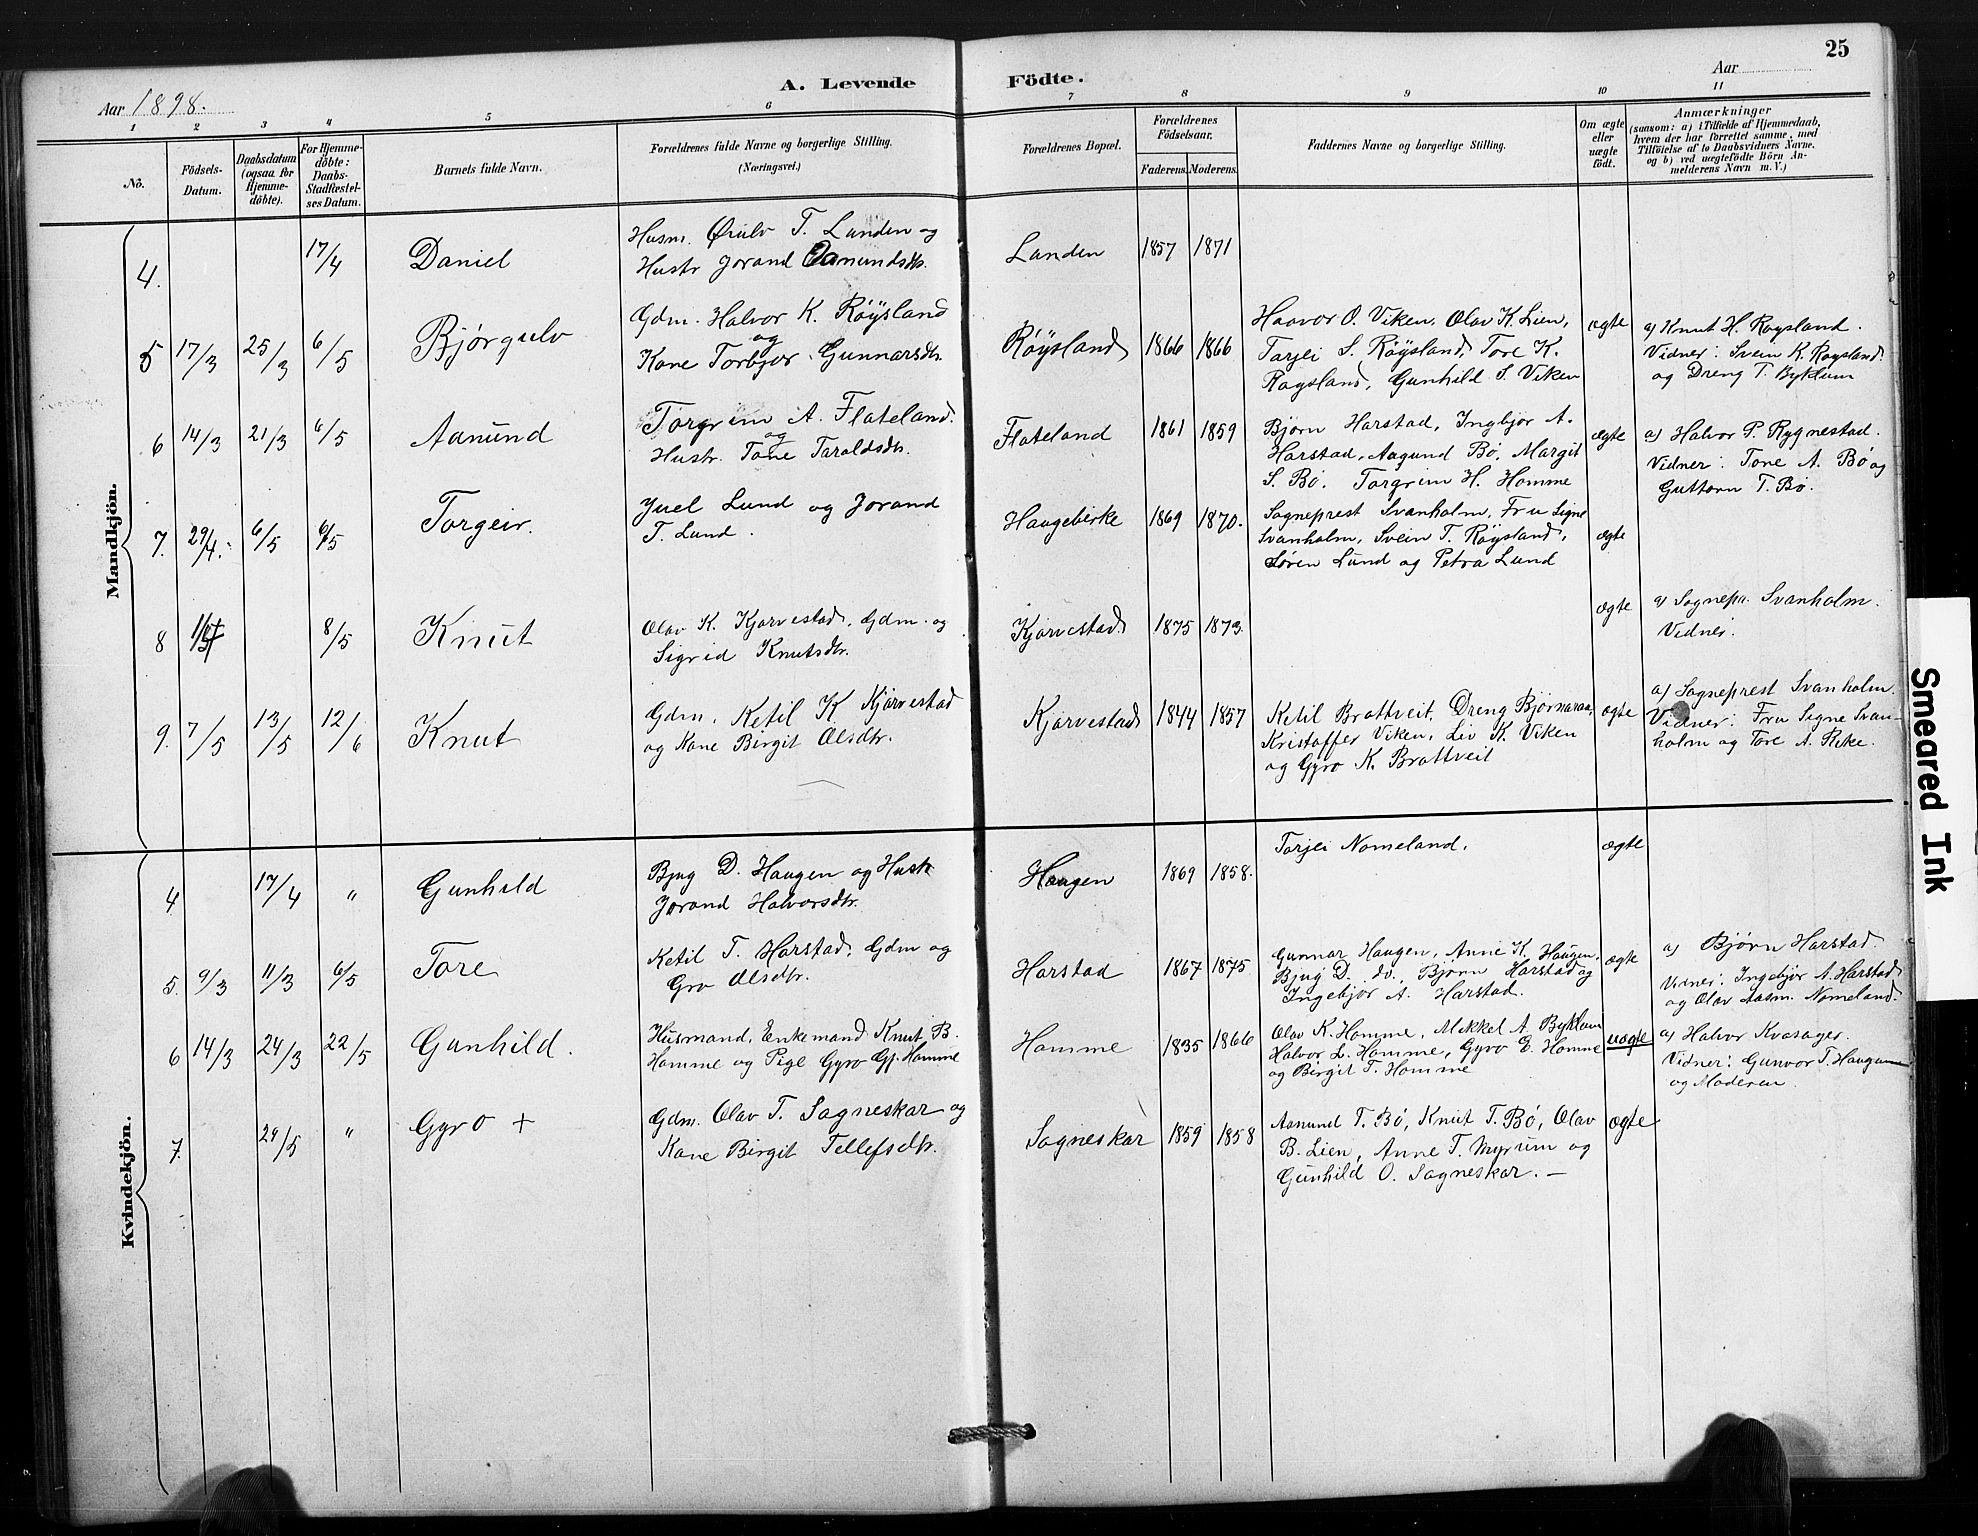 25
A. Levende Födte.
Aar 1898.
Aar
1 2 3 4 5 6 7 8 9 10 11
No.
Födsels-Datum.
Daabsdatum (ogsaa for Hjemme-döbte).
For Hjemme-döbte: Daabs-Stadfæstel-ses Datum.
Barnets fulde Navn.
Forældrenes fulde Navne og borgerlige Stilling.
(Næringsvei.)
Forældrenes Bopæl.
Forældrenes Födselsaar.
Faderens. Moderens.
Faddernes Navne og borgerlige Stilling.
Om ægte eller uægte födt.
Anmærkninger
(saasom: a) i Tilfælde af Hjemmedaab,
hvem der har forrettet samme, med
Tilföielse af to Daabsvidners Navne,
og b) ved uægtefödte Börn An-
melderens Navn m. V.)
Mandkjön.
4. 17/4 Daniel
Husm. Øiulv T. Lunden og
Hustr Jorand Aanundsdtr.
Lunden 1857 1871
5 17/3 25/3 6/5 Bjørgulv
Gdm. Halvor K. Røysland
og
Kone Torbjor Gunnarsdtr.
Røysland 1866 1866
Haavor O. Viken, Olav K. Lien,
Tarjei S. Røysland, Tore K.
Roysland, Gunhild S. Viken
ægte
a) Knut H. Roysland.
Vidner: Svein K. Roysland.
og Dreng T. Byklum
6 14/3 21/3 6/5 Aanund
Torgrim A. Flateland.
og
Hustr. Tone Taraldsdtr.
Flateland 1861 1859
Bjørn Harstad, Ingbjor A.
Harstad, Aagund Bø, Margit
S. Bø, Torgrim H. Homme
ægte
a) Halvor P. Rygnestad.
Vidner: Tone A. Bø og
Guttorm T. Bø.
7. 29/4. 6/5 6/5 Torgeir.
Juel Lund og Jorand
T. Lund.
Haugebirke 1869 1870.
Sogneprest Svanholm, Fru Signe
Svanholm, Svein T. Røysland,
Søren Lund og Petra Lund
ægte
8 8/5 Knut
Olav K. Kjørvestad, Gdm. og
Sigrid Knutsdtr.
Kjørvestad 1875 1873.
ægte
a) Sognepr. Svanholm.
Vidner:
9. 7/5 13/5 12/6 Knut
Gdm. Ketil K Kjørvestad
og Kone Birgit Olsdtr.
Kjørvestad 1844 1857
Ketil Brottveit, Dreng Bjørnaraa,
Kristoffer Viken, Liv K. Viken
og Gyro K. Brottveit
ægte
a) Sogneprest Svanholm.
Vidner: Fru Signe Svan-
holm og Tore A. Rike.
Kvindekjön.
4 17/4 " Gunhild
Bjug D. Haugen og Hustr
Jorand Halvorsdtr.
Haugen 1869 1858.
Tarjei Nomeland.
ægte
5. 9/3 11/3 6/5 Tore
Ketil T. Harstad, Gdm og
Gro Olsdtr.
Harstad 1867 1875
Gunnar Haugen, Anne K. Haugen,
Bjug D. do., Bjørn Harstad og
Ingebjor A. Harstad.
ægte
a) Bjørn Harstad.
Vidner: Ingebjør A. Harstad
og Olav Aasm. Nomeland.
6 14/3 24/3 22/5 Gunhild.
Husmand, Enkemand Knut B.
Homme og Pige Gyro Gj. Homme
Homme 1835 1866
Olav K. Homme, Mikkel A. Byklum
Halvor L. Homme, Gyro E. Homme
og Birgit T. Homme
uægte
a) Halvor Kvasager.
Vidner: Gunvor T. Haugum
og Moderen.
7. 29/5 " Gyro +
Gdm. Olav T. Sagneskar og
Kone Birgit Tellefsdtr.
Sagneskar 1859 1858
Asmund T. Bø, Knut T. Bø, Olav
B. Lien, Anne T. Myrum og
Gunhild O. Sagneskar. —
ægte
Smeared Ink